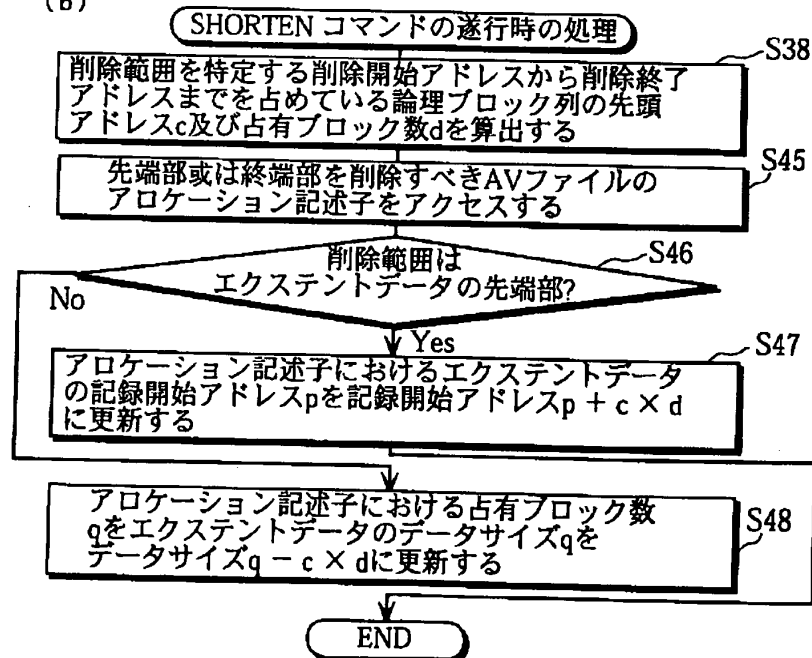 (b)
SHORTEN コマンドの遂行時の処理
S38
削除範囲を特定する削除開始アドレスから削除終了
アドレスまでを占めている論理ブロック列の先頭
アドレスc及び占有ブロック数dを算出する
S45
先端部或は終端部を削除すべきAVファイルの
アロケーション記述子をアクセスする
S46
削除範囲は
エクステントデータの先端部?
No
Yes
S47
アロケーション記述子におけるエクステントデータ
の記録開始アドレスpを記録開始アドレスp + c × d
に更新する
アロケーション記述子における占有ブロック数
S48
qをエクステントデータのデータサイズqを
データサイズq − c × dに更新する
END